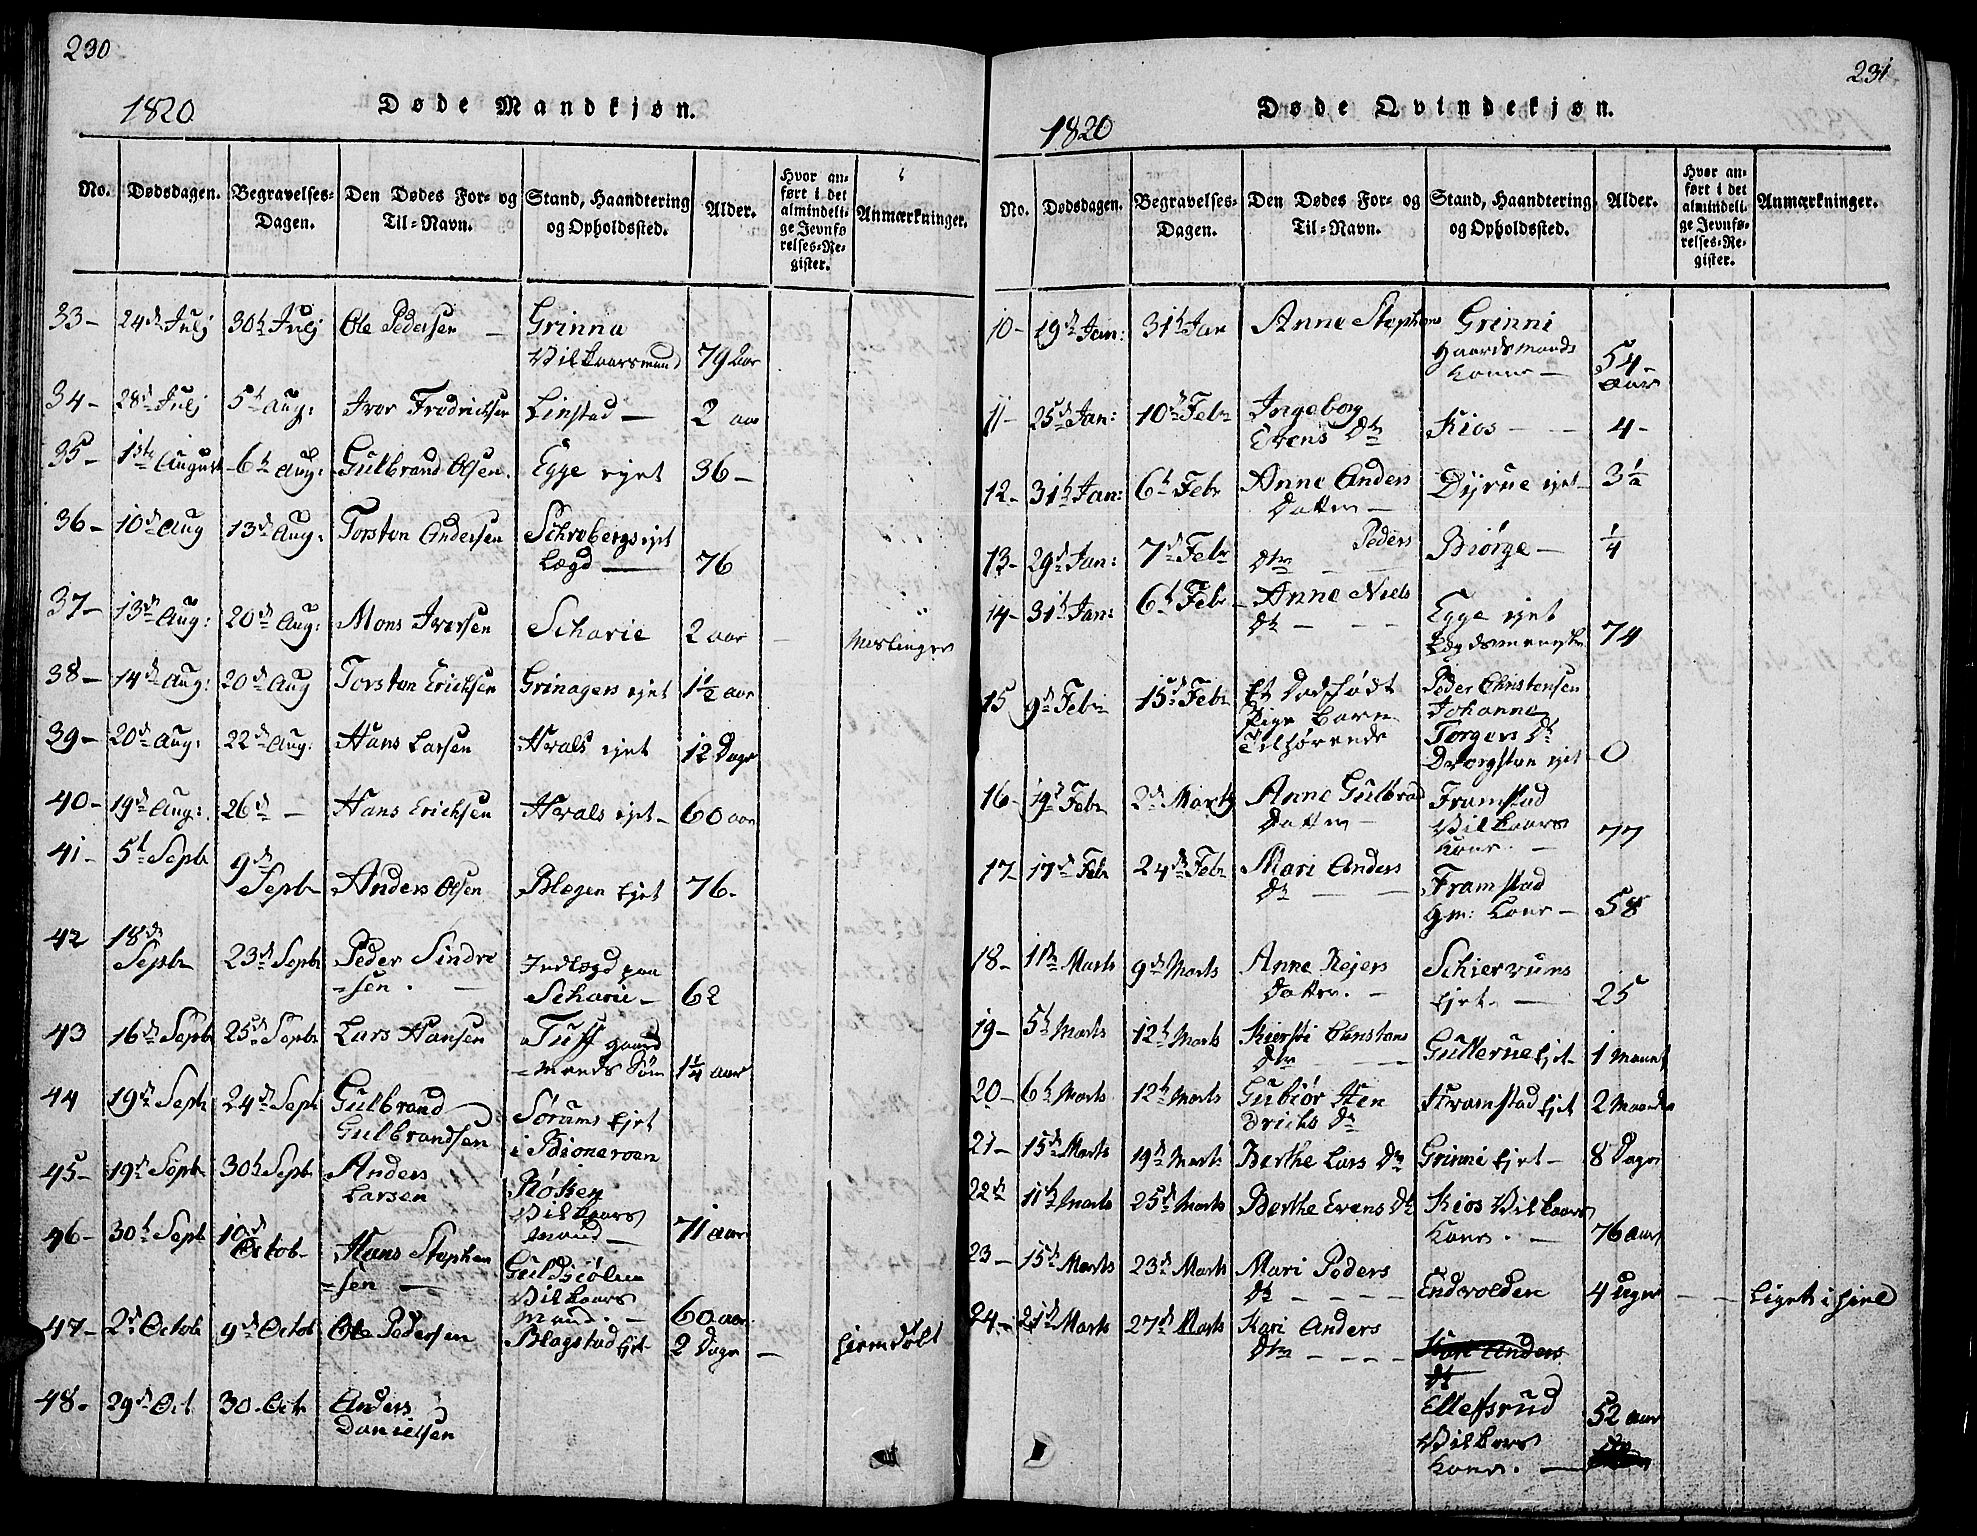 230
1820
Døde Mandkjøn.
No. Dødsdagen. Begravelses-Dagen. Den Dødes For- og Til-Navn. Stand, Haandtering og Opholdssted. Alder. Hvor anført i det almindelige Jevnførelses-Register. Anmærkninger.
33- 24d Julj 30h Julj Ole Pedersen — Grinna
Vilkaarsmand 79 Aar
34- 28d Julj 5h Aug: Iver Fredrichsen Linstad — 2 aar
35- 1ste August 6h Aug: Gulbrand Olsen. Egge ejet 36-
36- 10d Aug 13d Aug: Torsten Andersen Schrebergs ejet
Lægd — 76
37- 13d Aug: 20d Aug: Mons Iversen Scharie 2 aar — Meslinger
38- 14d Aug: 20d Aug Torsten Erichsen Grinagers ejet 1½ aar
39- 20d Aug: 22d Aug: Hans Larsen Hvals ejet 12 Dage
40- 19d Aug: 26d — Hans Erichsen Hvals ejet- 60 aar
41- 5t Septr 9d
Septr Anders Olsen Blegen Ejet 76.
42 18d
Septr 23d Septr Peder Sindre
=sen. — Indlægd paa
Scharie- 62
43 16d Septr 25d Septr Lars Hansen Tuff gaard
=mands Søn 1¼ aar
44 19d Septr 24d Septr Gulbrand
Gulbrandsen Sørums Ejet
i Bioneroen
45- 19d Septr 30h Septr Anders
Larsen Røssen
Vilkaars
mand — 71 aar
46- 30h Septr 10d
Octob- Hans Stephen
=sen — Guldsiølen
Vilkaars
Mand. — 60 aar
47- 2d Octob 9d Octob Ole Pedersen Blagstad Ejet- 2 Dage — Hjemdøbt
48. 29d Oct 30. Oct Anders
Danielsen
231
1820
Døde Qvindekjøn.
No. Dødsdagen. Begravelses-Dagen. Den Dødes For- og Til-Navn. Stand, Haandtering og Opholdssted. Alder. Hvor anført i det almindelige Jevnførelses-Register. Anmærkninger.
10- 19d Jan: 31h Jan Anne Stephens Grinni
Gaardsmands
Kone — 54-
Aar
11- 25d Jan: 10d Febr Ingeborg
Evens Dtr Kios — 4-
12- 31h Jan: 6h Febr Anne Anders
Datter — Dyrue ejet- 3½
13- 29d Jan: 7d Febr Peders
Dtr — Biørge — ¼
14- 31h Jan: 6h Febr Anne Niels
Dtr — Egge ejet
Lægdsmenneske 74
15 9d Febr 15d Febr Et Dødfødt
Pige Barn
Tilhørende Peder Christensen
Johanna
Torgers Dtr
Dvergsten ejet 0
16- 19d Febr 2d Marts Anne Gulbrand
Datter — Framstad
Vilkaars
Kone. — 77
17 17d Febr 24d Febr Mari Anders
Dtr — Framstad
Gm: Kone — 58
18- 1ste Marts 9d Marts Anne Rejers
Datter. — Schiervums
Ejet. — 25
19- 5h Marts 12h Marts Kiersti Christens
Dtr — Gullerue Ejet- 1 Maanet
20- 6h Marts 12h Marts Gubiør Hen
drichs Dtr Framstad Ejet 2 Maander
21- 15d Marts 19d Marts Berthe Lars Dtr Grinni Ejet- 8 Dage
22d 11h Marts 25d Marts Berthe Evens Dtr Kios Vilkaars
Kone. — 76 aar
23- 15d Marts 23d Marts Mari Peders
Dtr — Endvolden 4 uger — — Ligets i hiel
24- 21d Marts 27d Marts Kari Anders
Dtr — Kari Anders
Dtr
Ellefsrud
Vilkaars
Kone. — 52 aar